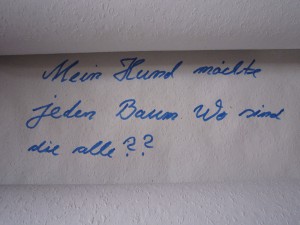 Mein Hund möchte
jeden Baum Wo sind
die alle??